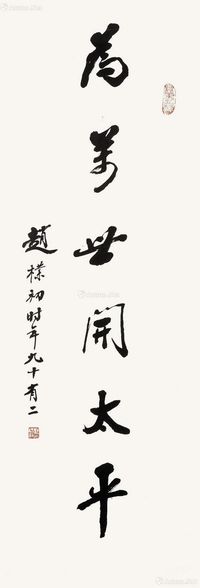 為萬世開太平
趙樸初時年九十有二